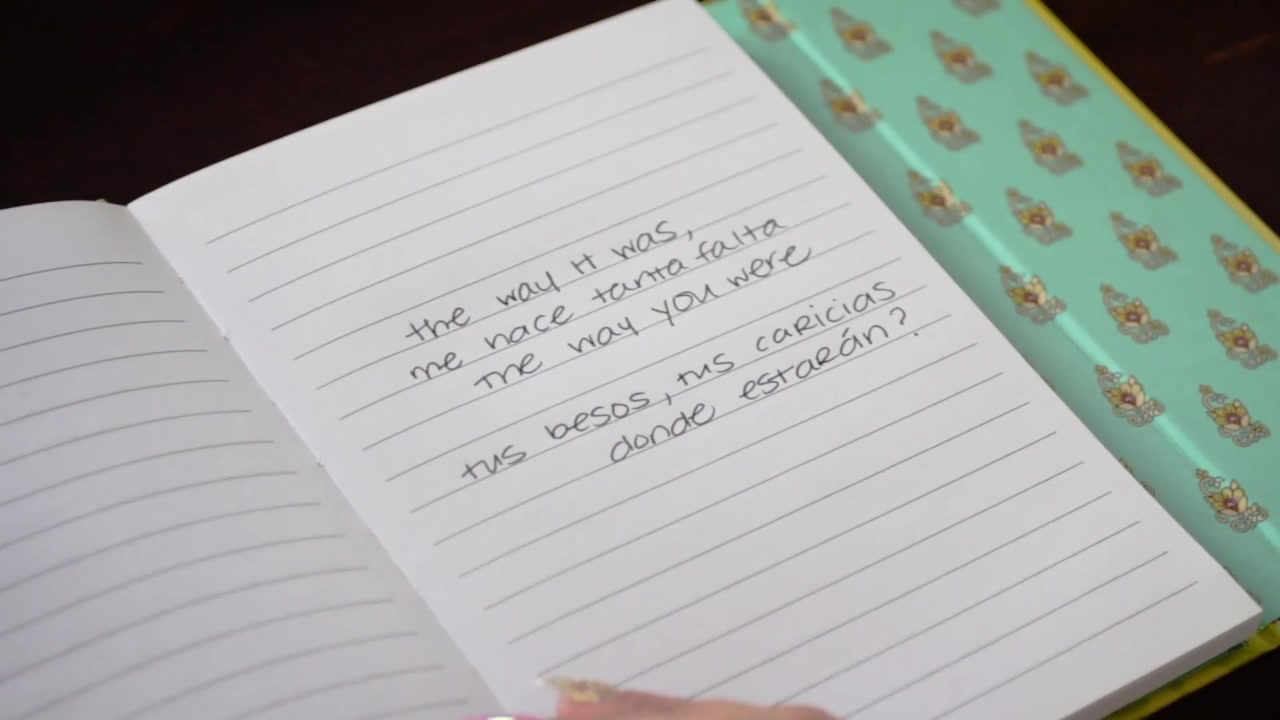 the way it was,
me hace tanta falta
the way you were
tus besos, tus caricias
donde estarán?